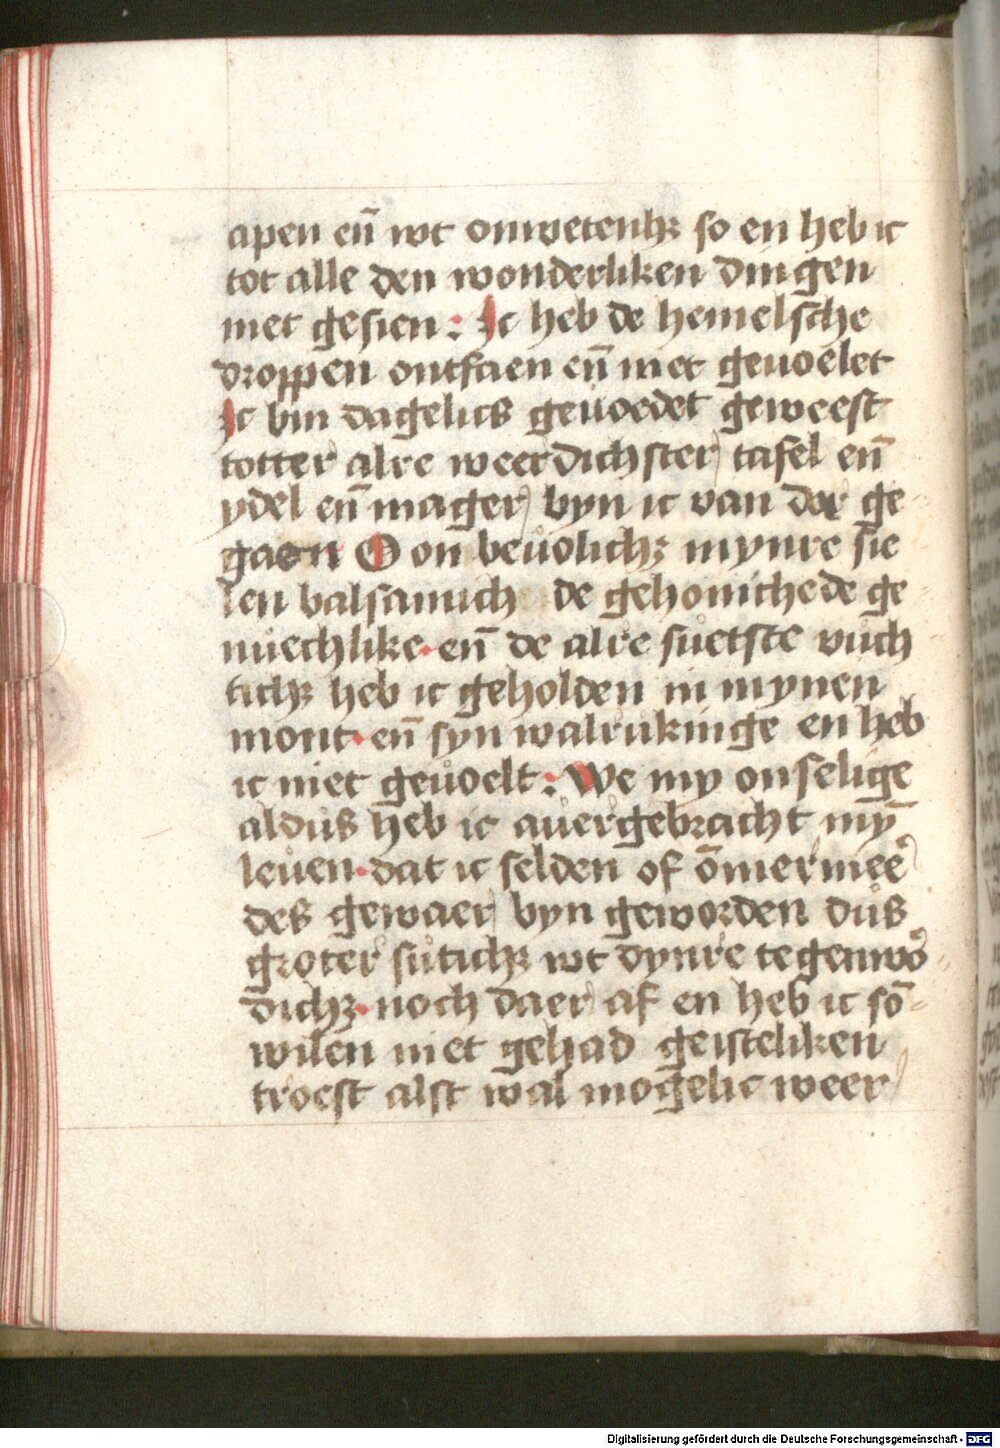 apen en̄ wt onwetenhꝫ so en heb ic
tot alle den wonderliken dingen
niet gesien : Ic heb de hemelsche
droppen ontfaen en̄ niet geuoelet
Ic bin dagelics geuoedet geweest
totter alre weerdichster tafel en̄
ydel en̄ mager byn ic van dar ge
gaen O on beuolichꝫ mynre sie
len balsamich de gehonichede ge
nuechlike · en̄ de alre suetste vuch
tichꝫ heb ic geholden in mynen
mont · en̄ syn walrukinge en heb
ic niet geuoelt : We my onselige
aldus heb ic auergebracht my̅
leuen · dat ic selden of o̅mermeer
des gewaer byn geworden dus
groter sutichꝫ wt dynre tegenwo
dichꝫ · noch daer af en heb ic so̅
wilen niet gehad geisteliken
troest alst wal mogelic weer
Digitalisierung gefördert durch die Deutsche Forschungsgemeinschaft - DFG